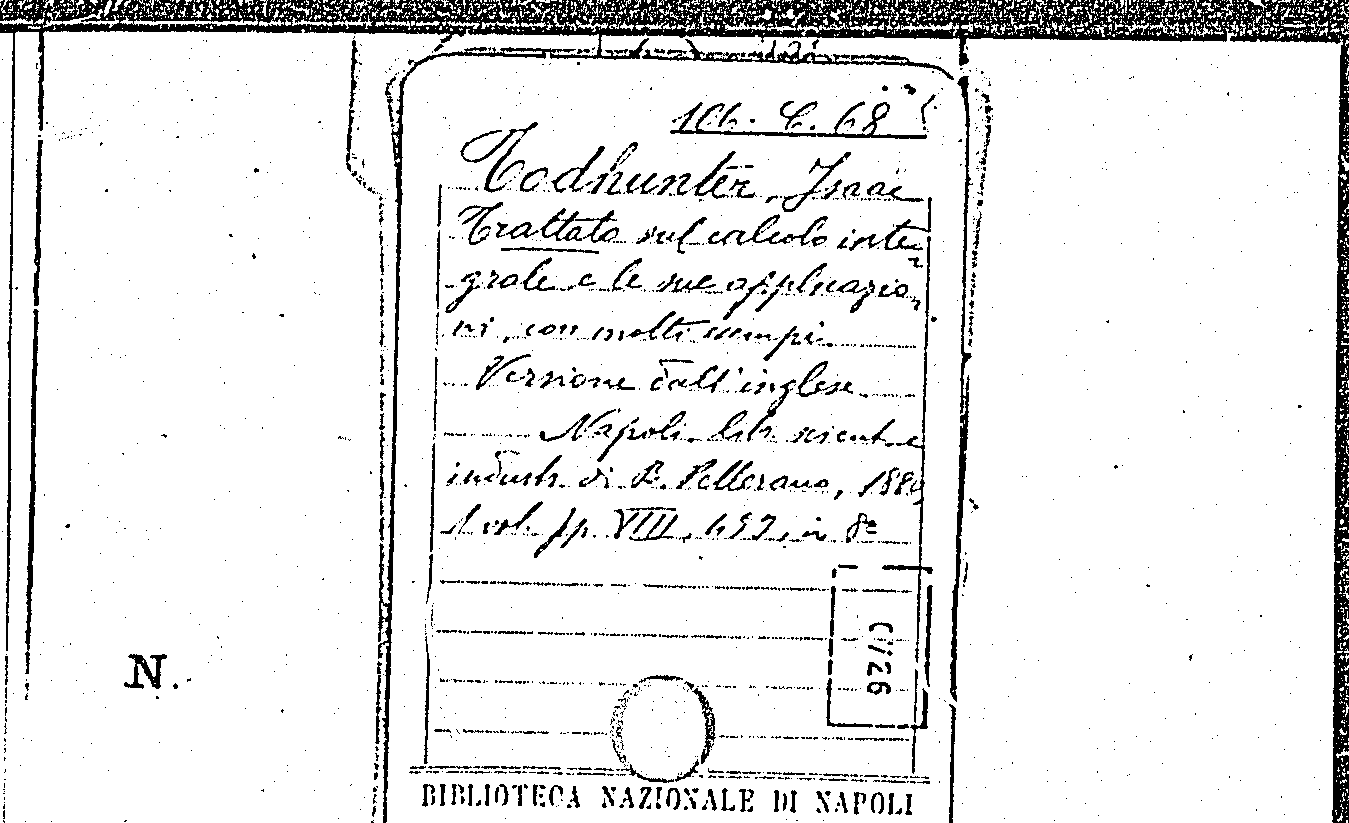 106. C. 68
Todhunter, Isaac
Trattato sul calcolo inte-
grale e le sue applicazio-
ni, con molti esempi.
Versione dall'inglese
Napoli. Lib. scient. e
industr. di B. Pellerano, 188
1 vol. pp. VIII, in 8º
N.
BIBLIOTECA NAZIONALE DI NAPOLI